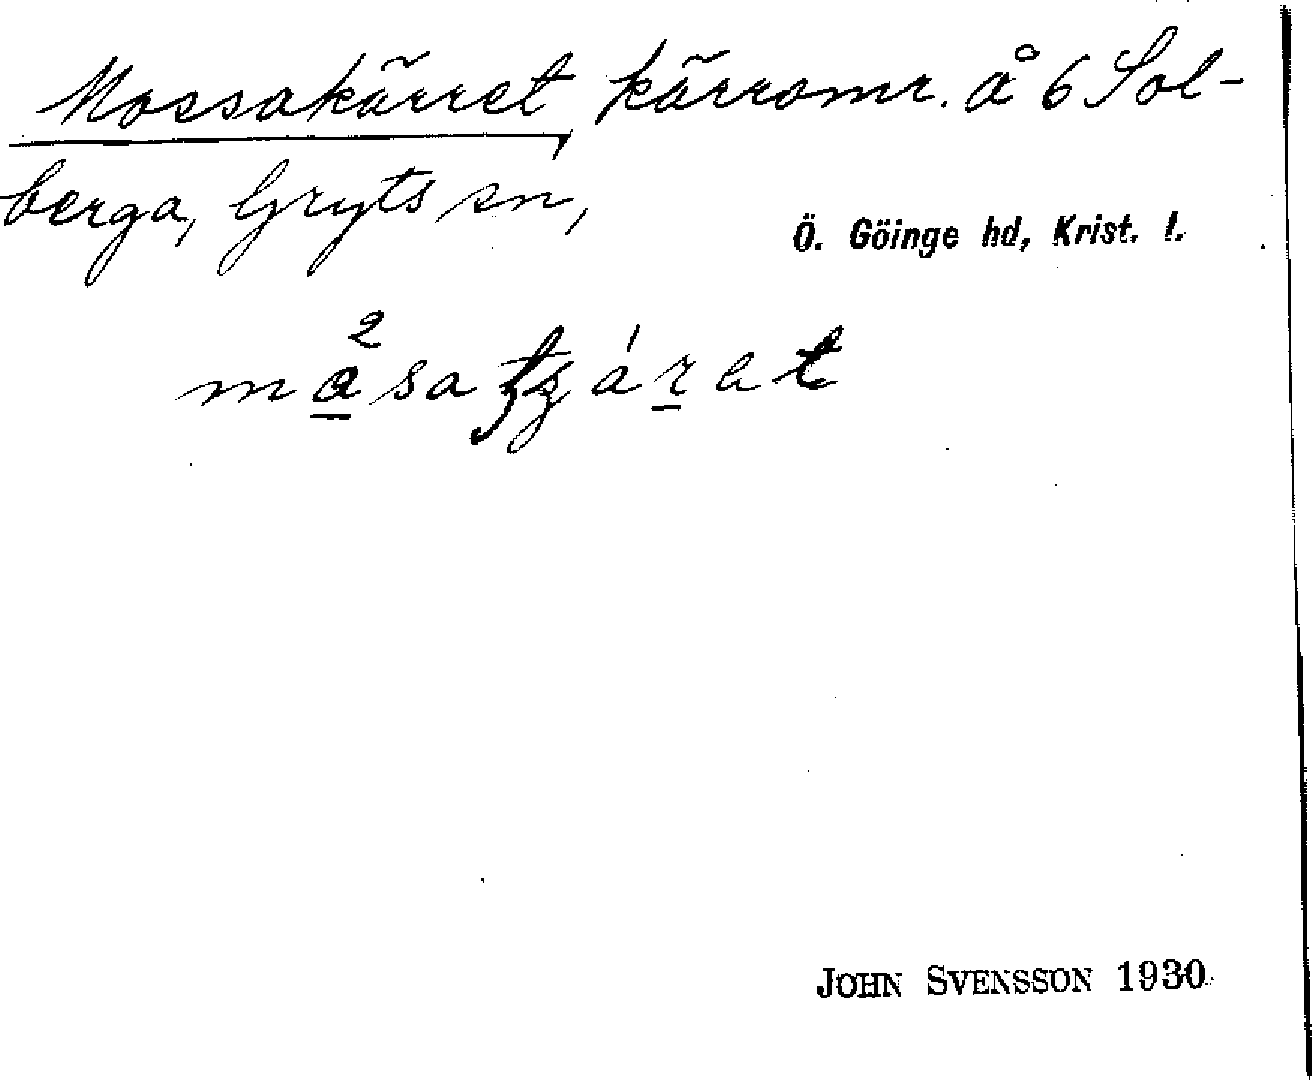 Mossakärret, kärromr. å 6 Sol-
berga, Gryts sn,
Ö. Göinge hd, Krist. l.
JOHN SVENSSON 1930